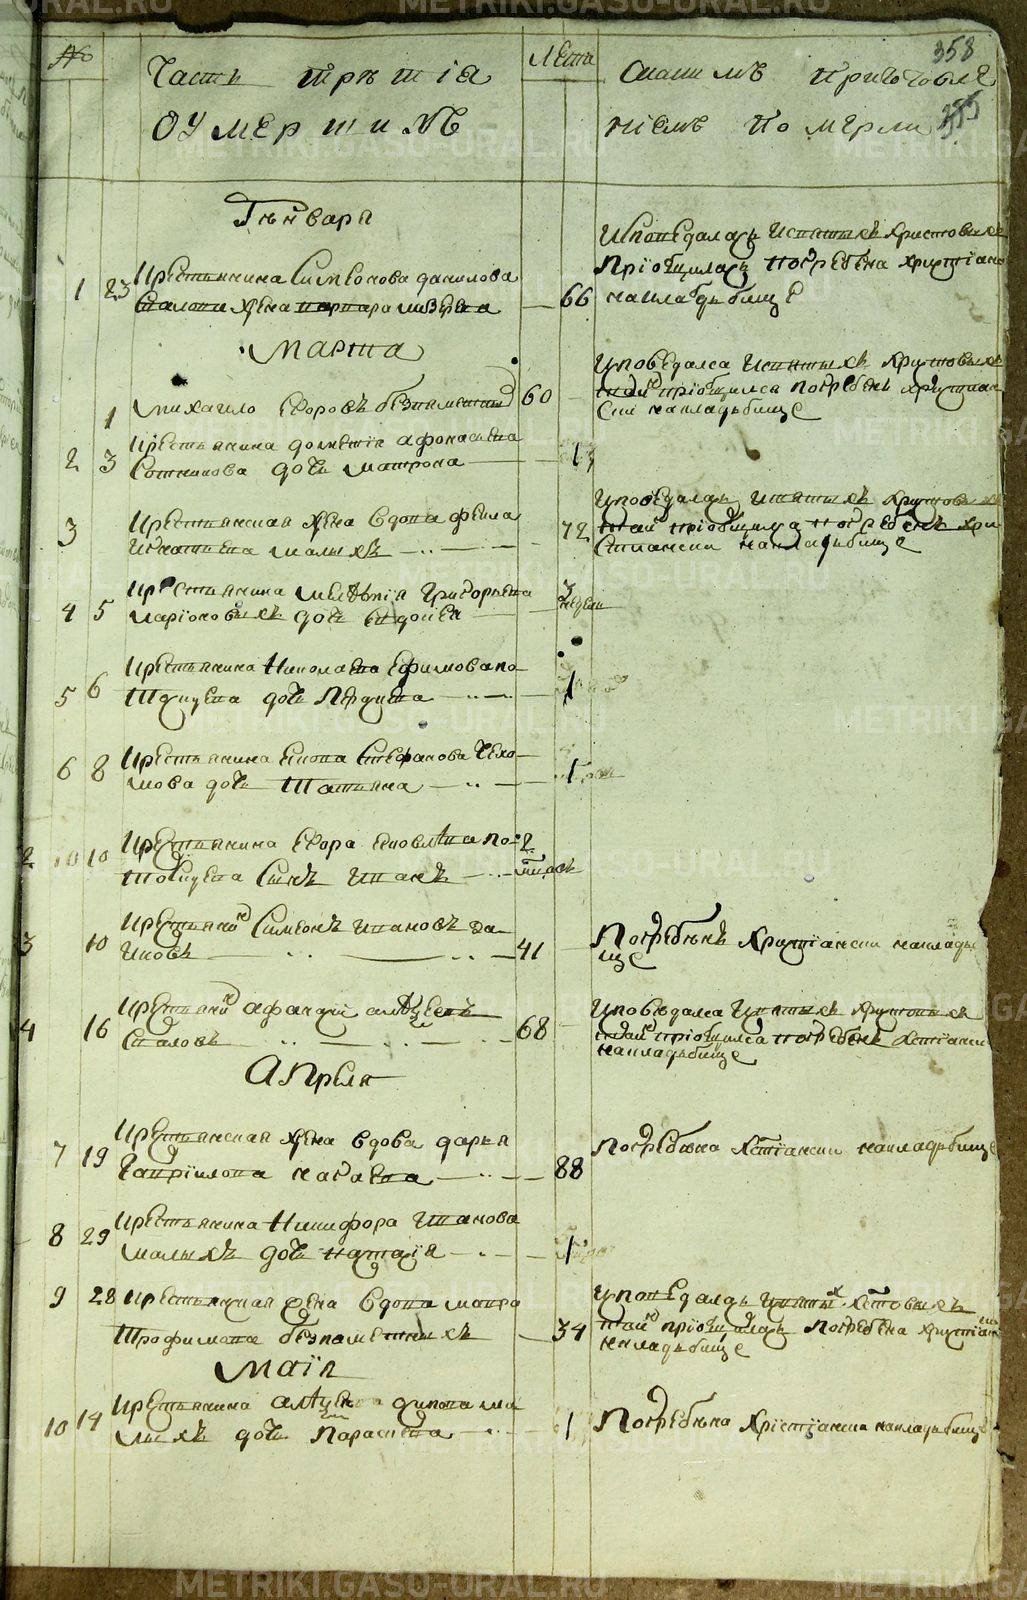 №
Часть третіа
оумершихъ
Лета
Скакимъ приготовле
ніемъ померли
358
Генваря
1 23 Крестьянина Симеонова данилова
жена варвара 66
Исповедалась Истыхъ христовыхъ
Пріобщилась погребена христіанс
накладъбище
Марта
1 михаило Егоровъ безпаметныхъ 60
Исповедалса Истыхъ христовыхъ
таинъ пріобщилса погребенъ христиан
ски накладьбище
2 3 Крестьянина дометія афонасьева
Сотникова дочь матрона 1
3 Крестьянская жена вдова фекла
Игнатиева малыхъ 72
Исповедалась Истыхъ христовыхъ
таинъ пріобщилса погребенъ хри
стиански накладьбище
4 5 Крестьянина Григорьева
Ларіоновыхъ дочь Евдокея 3
недели
5 6 Крестьянина Николаева Ефимова по
дочь 1
6 8 Крестьянина Якова Стефанова Чехо
мова дочь Татьяна 1
2 10 10 Крестьянина Егора Яковлева по
сынъ Иванъ 2
3 10 Крестьянинъ Симеонъ Ивановъ да
ниловъ 41
Погребенъ Христіански накладьби
ще
4 16 Крестьянинъ афанасіи алексеевъ
68
Исповедалса Истыхъ христовыхъ
таинъ пріобщилса погребенъ хстіански
накладьбище
Апреля
7 19 Крестьянская жена вдова дарья
Гаврилова 88
Погребена хстіански накладьбище
8 29 Крестьянина Никифора Иванова
малыхъ дочь наталія 1
9 28 Крестьянская жена вдова мавра
Трофимова безпаметныхъ 34
Исповедалась Истыхъ хстовыхъ
таинъ пріобщилась погребена христіан
накладьбище
Маія
10 14 Крестьянина алексея ма
лыхъ дочь Парасковья 1
Погребена Хрістіански накладьбище
METRIKI.GASO-URAL.RU